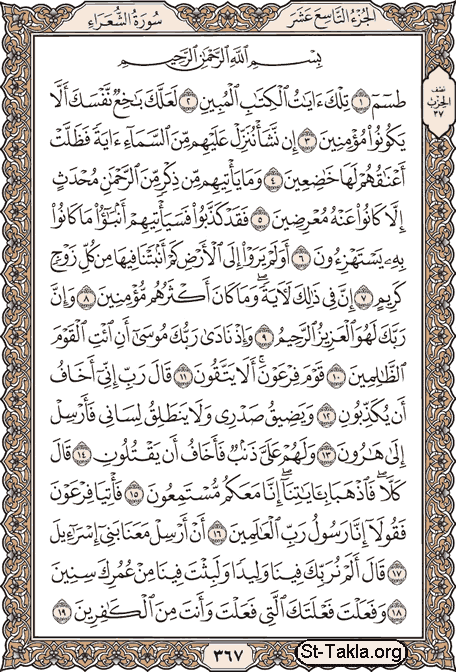 الجُزْءُ التَّاسِعَ عَشَرَ
سُورَةُ الشُّعَرَاءِ
نصف
الحزب
٣٧
بِسْمِ ٱللَّهِ ٱلرَّحْمَٰنِ ٱلرَّحِيمِ
طسٓمٓ ١ تِلْكَ ءَايَٰتُ ٱلْكِتَٰبِ ٱلْمُبِينِ ٢ لَعَلَّكَ بَٰخِعٌ نَّفْسَكَ أَلَّا
يَكُونُوا۟ مُؤْمِنِينَ ٣ إِن نَّشَأْ نُنَزِّلْ عَلَيْهِم مِّنَ ٱلسَّمَآءِ ءَايَةً فَظَلَّتْ
أَعْنَٰقُهُمْ لَهَا خَٰضِعِينَ ٤ وَمَا يَأْتِيهِم مِّن ذِكْرٍ مِّنَ ٱلرَّحْمَٰنِ مُحْدَثٍ
إِلَّا كَانُوا۟ عَنْهُ مُعْرِضِينَ ٥ فَقَدْ كَذَّبُوا۟ فَسَيَأْتِيهِمْ أَنۢبَٰٓؤُا۟ مَا كَانُوا۟
بِهِۦ يَسْتَهْزِءُونَ ٦ أَوَلَمْ يَرَوْا۟ إِلَى ٱلْأَرْضِ كَمْ أَنۢبَتْنَا فِيهَا مِن كُلِّ زَوْجٍ
كَرِيمٍ ٧ إِنَّ فِى ذَٰلِكَ لَءَايَةً ۖ وَمَا كَانَ أَكْثَرُهُم مُّؤْمِنِينَ ٨ وَإِنَّ
رَبَّكَ لَهُوَ ٱلْعَزِيزُ ٱلرَّحِيمُ ٩ وَإِذْ نَادَىٰ رَبُّكَ مُوسَىٰٓ أَنِ ٱئْتِ ٱلْقَوْمَ
ٱلظَّٰلِمِينَ ١٠ قَوْمَ فِرْعَوْنَ ۚ أَلَا يَتَّقُونَ ١١ قَالَ رَبِّ إِنِّىٓ أَخَافُ
أَن يُكَذِّبُونِ ١٢ وَيَضِيقُ صَدْرِى وَلَا يَنطَلِقُ لِسَانِى فَأَرْسِلْ
إِلَىٰ هَٰرُونَ ١٣ وَلَهُمْ عَلَىَّ ذَنۢبٌ فَأَخَافُ أَن يَقْتُلُونِ ١٤ قَالَ
كَلَّا ۖ فَٱذْهَبَا بِـَٔايَٰتِنَآ ۖ إِنَّا مَعَكُم مُّسْتَمِعُونَ ١٥ فَأْتِيَا فِرْعَوْنَ
فَقُولَآ إِنَّا رَسُولُ رَبِّ ٱلْعَٰلَمِينَ ١٦ أَنْ أَرْسِلْ مَعَنَا بَنِىٓ إِسْرَٰٓءِيلَ
١٧ قَالَ أَلَمْ نُرَبِّكَ فِينَا وَلِيدًا وَلَبِثْتَ فِينَا مِنْ عُمُرِكَ سِنِينَ
١٨ وَفَعَلْتَ فَعْلَتَكَ ٱلَّتِى فَعَلْتَ وَأَنتَ مِنَ ٱلْكَٰفِرِينَ ١٩
٣٦٧
St-Takla.org